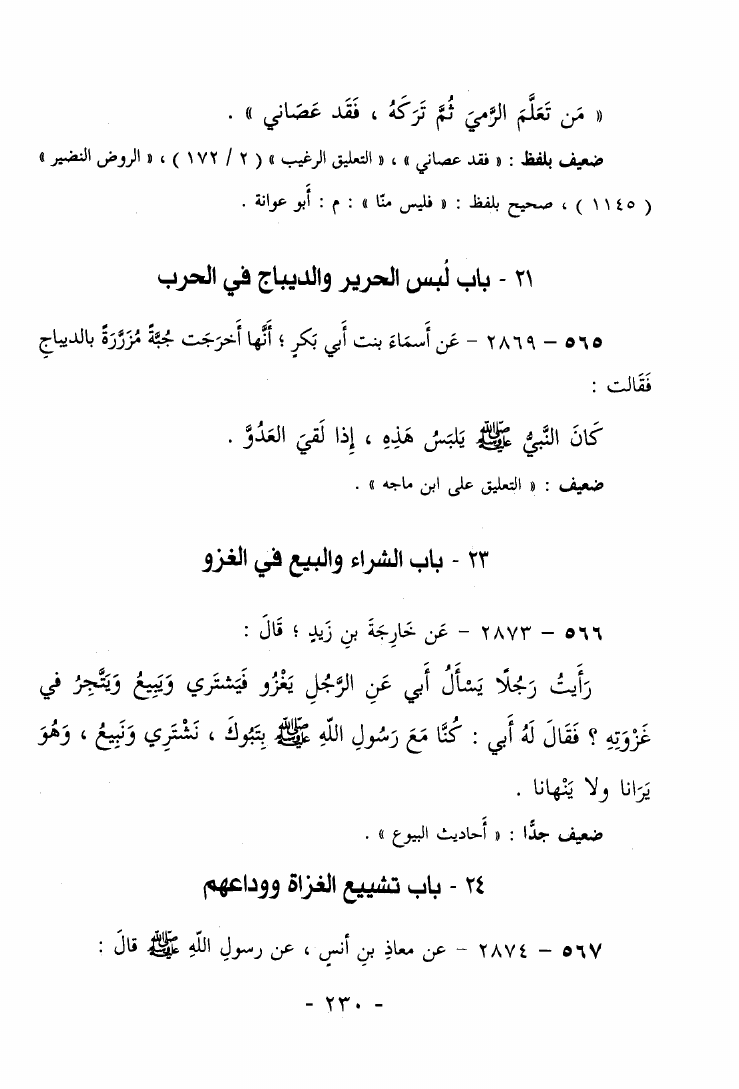 « مَن تَعَلَّمَ الرَّميَ ثُمَّ تَرَكَهُ ، فَقَد عَصَاني » .
ضعيف بلفظ : « فقد عصاني » ، « التعليق الرغيب » ( ٢ / ١٧٢ ) ، « الروض النضير »
( ١١٤٥ ) ، صحيح بلفظ : « فليس منّا » : م : أبو عوانة .
٢١ - باب لُبس الحرير والديباج في الحرب
٥٦٥ – ٢٨٦٩ – عَن أَسمَاءَ بنت أَبي بَكرٍ ؛ أَنَّها أَخرَجَت جُبَّةً مُزَرَّرَةً بالديباجِ
فَقَالت :
كَانَ النَّبيُّ ﷺ يَلبَسُ هَذِهِ ، إِذا لَقيَ العَدُوَّ .
ضعيف : « التعليق على ابن ماجه » .
٢٣ - باب الشراء والبيع في الغزو
٥٦٦ – ٢٨٧٣ – عَن خَارِجَةَ بنِ زَيدٍ ؛ قَالَ :
رَأَيتُ رَجُلًا يَسْأَلُ أَبي عَنِ الرَّجُلِ يَغْزُو فَيَشتَري وَيَبِيعُ وَيَتَّجِرُ في
غَزْوَتِهِ ؟ فَقَالَ لَهُ أَبي : كُنَّا مَعَ رَسُولِ اللّهِ ﷺ بِتَبُوكَ ، نَشْتَرِي وَنَبِيعُ ، وَهُوَ
يَرَانا ولا يَنْهانا .
ضعيف جدًّا : « أَحاديث البيوع » .
٢٤ - باب تشييع الغزاة ووداعهم
٥٦٧ – ٢٨٧٤ – عن معاذِ بنِ أنسٍ ، عن رسولِ اللّهِ ﷺ قالَ :
- ٢٣٠ -